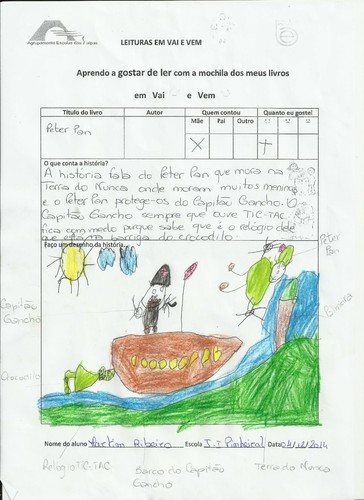 Agrupamento Escolas das Taipas
LEITURAS EM VAI E VEM
Aprendo a gostar de ler com a mochila dos meus livros
em Vai e Vem
Título do livro Autor Quem contou Quanto eu gostei
Mãe Pai Outro
Peter Pan X
O que conta a história?
A história fala do Peter Pan que mora na
Terra do Nunca onde moram muitos meninos
e o Peter Pan protege-os do Capitão Gancho. O
Capitão Gancho sempre que ouve TIC-TAC
fica com medo porque sabe que é o relógio dele
que está na barriga do crocodilo
Faço um desenho da história
Peter
Pan
Capitão
Gancho
Crocodilo
Nome do aluno Martim Ribeiro Escola J.I Pinheiral Data 04/12/2014
Relógio TIC-TAC Barco do Capitão Terra do Nunca
Gancho